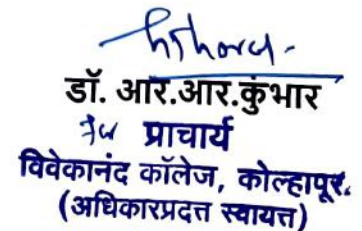 डॉ. आर.आर.कुंभार
प्राचार्य
विवेकानंद कॉलेज, कोल्हापूर.
(अधिकारप्रदत्त स्वायत्त)